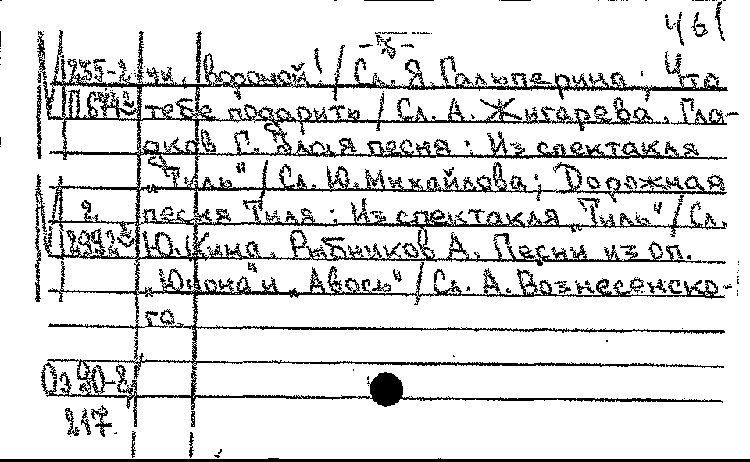 461
-3-
235-2 чи, вороной! / Сл. Я. Гальперина; Что
П 674 тебе подарить / Сл. А. Жигарева. Гла-
дков Г. Злая песня: Из спектакля
„Тиль" / Сл. Ю. Михайлова; Дорожная
2 песня Тиля: Из спектакля „Тиль" / Сл.
2992 Ю. Кима. Рыбников А. Песни из оп.
„Юнона" и „Авось" / Сл. А. Вознесенско-
го
Оз 90-2
217